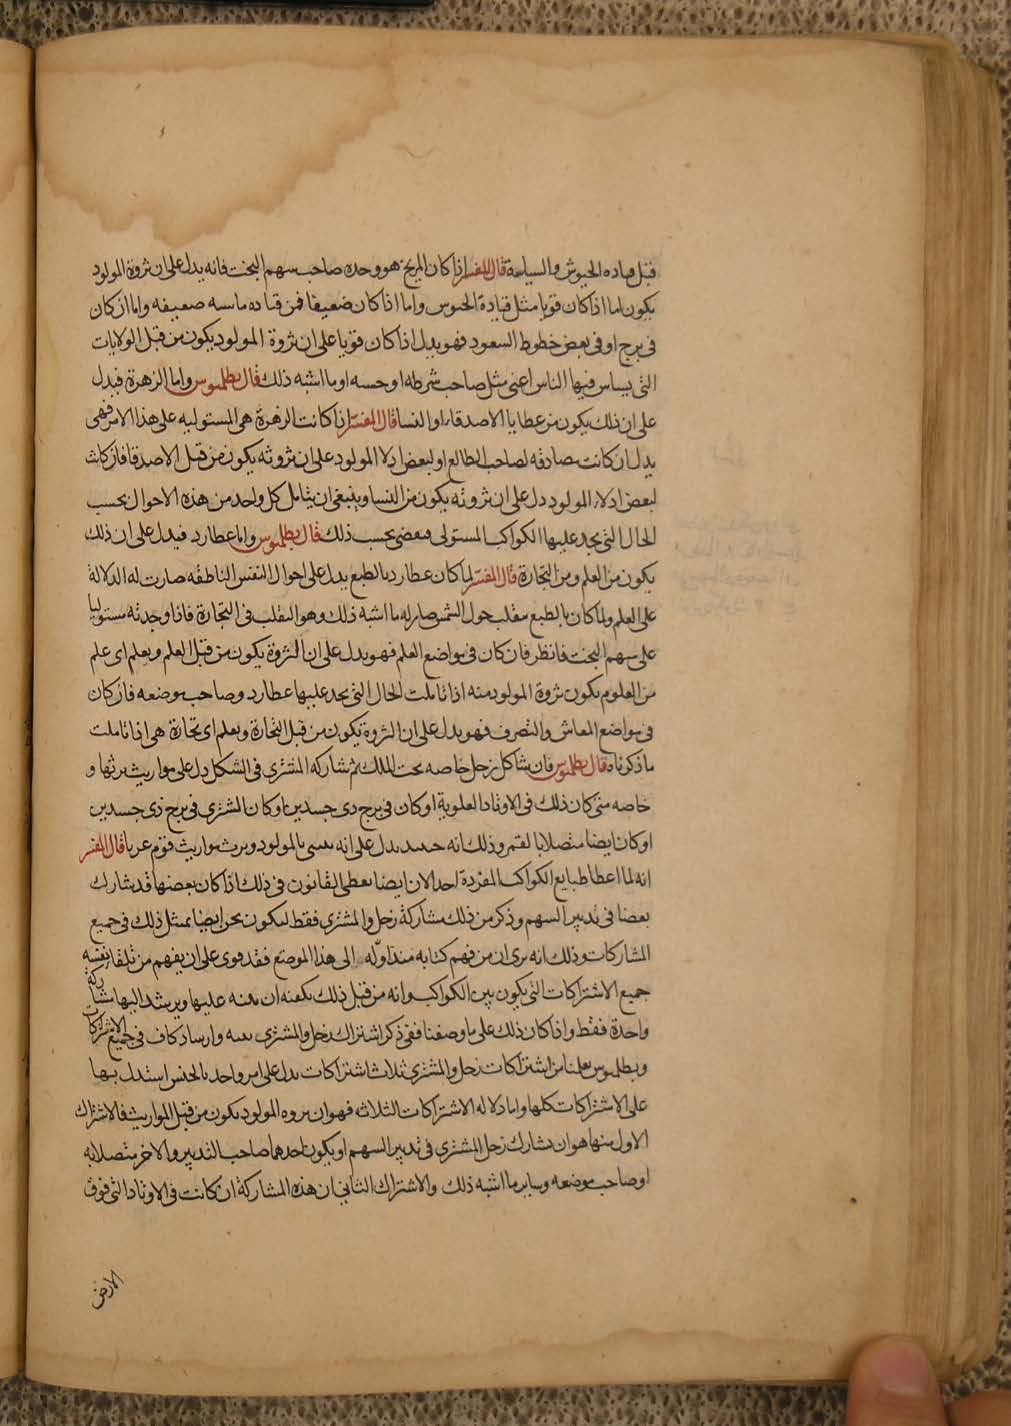 قبل قياده الجيوش والسياسة قال المفسر اذا كان المريخ هو وحده صاحب سهم البخت فانه يدل على ان ثروة المولود
يكون اما اذا كان قويا مثل قيادة الجيوس واما اذا كان ضعيفا فمن قياده ماسه ضعيفه واما ان كان
فى برج او فى بعض خطوط السعود فهو يدل اذا كان قويا على ان ثروة المولود يكون من قبل الولايات
التى يساس فيها الناس اعنى مثل صاحب شرطه او حسبه او ما اشبه ذلك قال بطلميوس واما الزهرة فيدل
على ان ذلك يكون من عطايا الاصدقاء او النسا قال المفسر اذا كانت الزهرة هى المستوليه على هذا الامر فهى
يدل ان كانت مصادقه لصاحب الطالع او لبعض ادلا المولود على ان ثروته يكون من قبل الاصدقا فان كانت
لبعض ادلاء المولود دل على ان ثروته يكون من النسا وينبغى ان يتامل كل واحد من هذه الاحوال بحسب
الحال التى يجد عليها الكواكب المستولى ويقضى بحسب ذلك قال بطلميوس واما عطارد فيدل على ان ذلك
يكون من العلم ومن التجارة قال المفسر لما كان عطارد بالطبع يدل على احوال النفس الناطقه صارت له الدلالة
على العلم ولما كان بالطبع متقلب حول الشمس صار له ما اشبه ذلك وهو التقلب فى التجارة فاذا وجدته مستوليا
على سهم البخت فانظر فان كان فى مواضع العلم فهو يدل على ان الثروة يكون من قبل العلم ويعلم اى علم
من العلوم يكون ثروة المولود منه اذا تاملت الحال التى يجد عليها عطارد وصاحب موضعه فان كان
فى مواضع المعاش والتصرف فهو يدل على ان الثروة تكون من قبل التجارة ويعلم اى تجارة هى اذا تاملت
ما ذكرناه قال بطلميوس فان شاكل زحل خاصه بخت الملك ثم شاركه المشترى فى الشكل دل على مواريث يرثها و
خاصه متى كان ذلك فى الاوتاد العلوية او كان فى برج ذى جسدين او كان المشترى فى برج ذى جسدين
او كان ايضا متصلا بالقمر وذلك انه حينئذ يدل على انه يتبنى بالمولود ويرث مواريث قوم غربا قال المفسر
انه لما اعطا طبايع الكواكب المفردة احد الان ايضا يعطى القانون فى ذلك اذا كان بعضها قد يشارك
بعضا فى تدبير السهم وذكر من ذلك مشاركة زحل والمشترى فقط ليكون نحن ايضا نمثل ذلك فى جميع
المشاركات وذلك انه يرى ان من فهم كتابه منذ اوله الى هذا الموضع فقد قوى على ان يفهم من تلقا نفسه
جميع الاشتراكات التى يكون بين الكواكب وانه من قبل ذلك يكفيه ان ينبه عليها ويرشد اليها مشاركة
واحدة فقط واذا كان ذلك على ما وصفنا ففى ذكر اشتراك زحل والمشترى تنبيه وارساد كاف فى جميع الاشتراكات
وبطلميوس يعلمنا من اشتراكات زحل والمشترى ثلاث اشتراكات يدل على امر واحد بالجنس استدل بها
على الاشتراكات كلها واما دلاله الاشتراكات الثلاثه فهو ان ثروه المولود يكون من قبل المواريث فالاشتراك
الاول منها هو ان يشارك زحل المشترى فى تدبير السهم او يكون احدهما صاحب التدبير والاخر متصلا به
او صاحب موضعه وساير ما اشبه ذلك والاشتراك الثانى ان هذه المشاركة ان كانت فى الاوتاد التى فوق
الارض